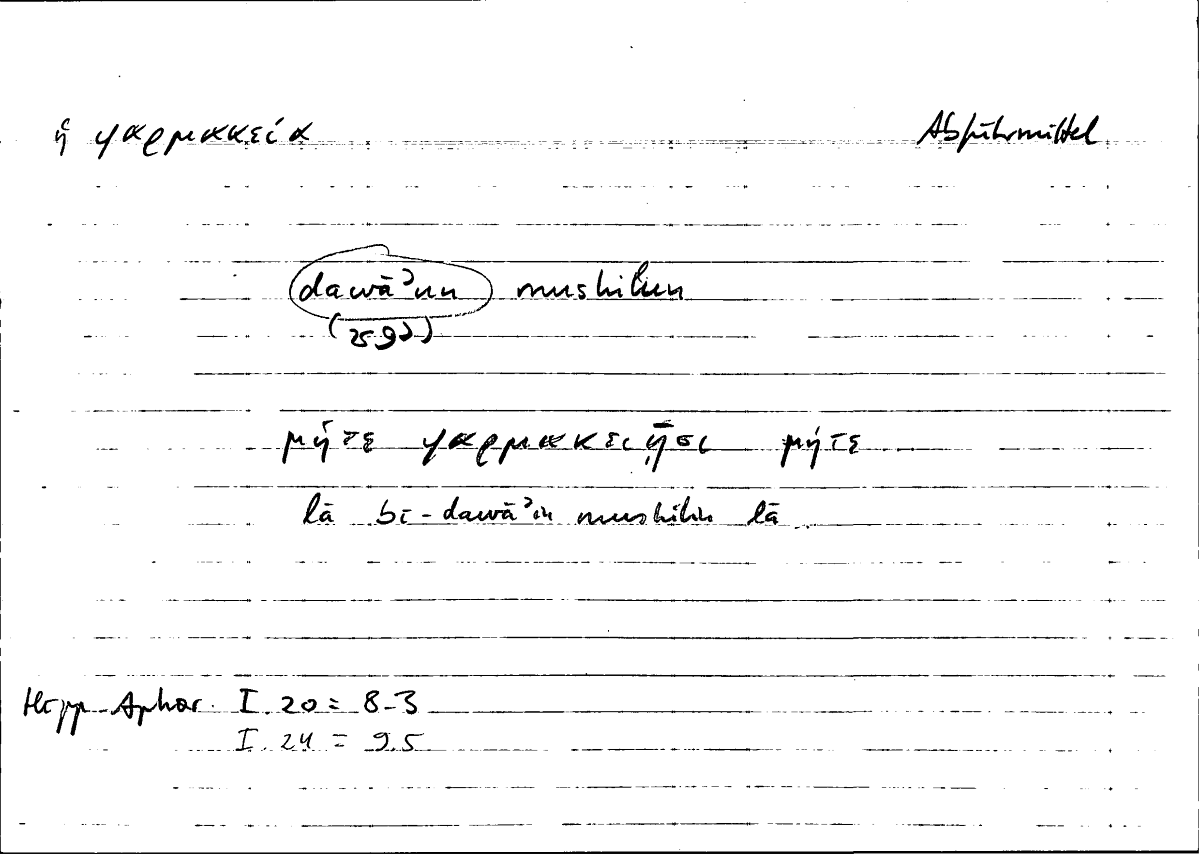 ἡ φαρμακεία Abführmittel
dawāʾun mushilun
μήτε φαρμακείῃσι μήτε
lā bi-dawāʾin mushilin lā
Hipp. Aphor. I.20 = 8-3
I.24 = 9.5